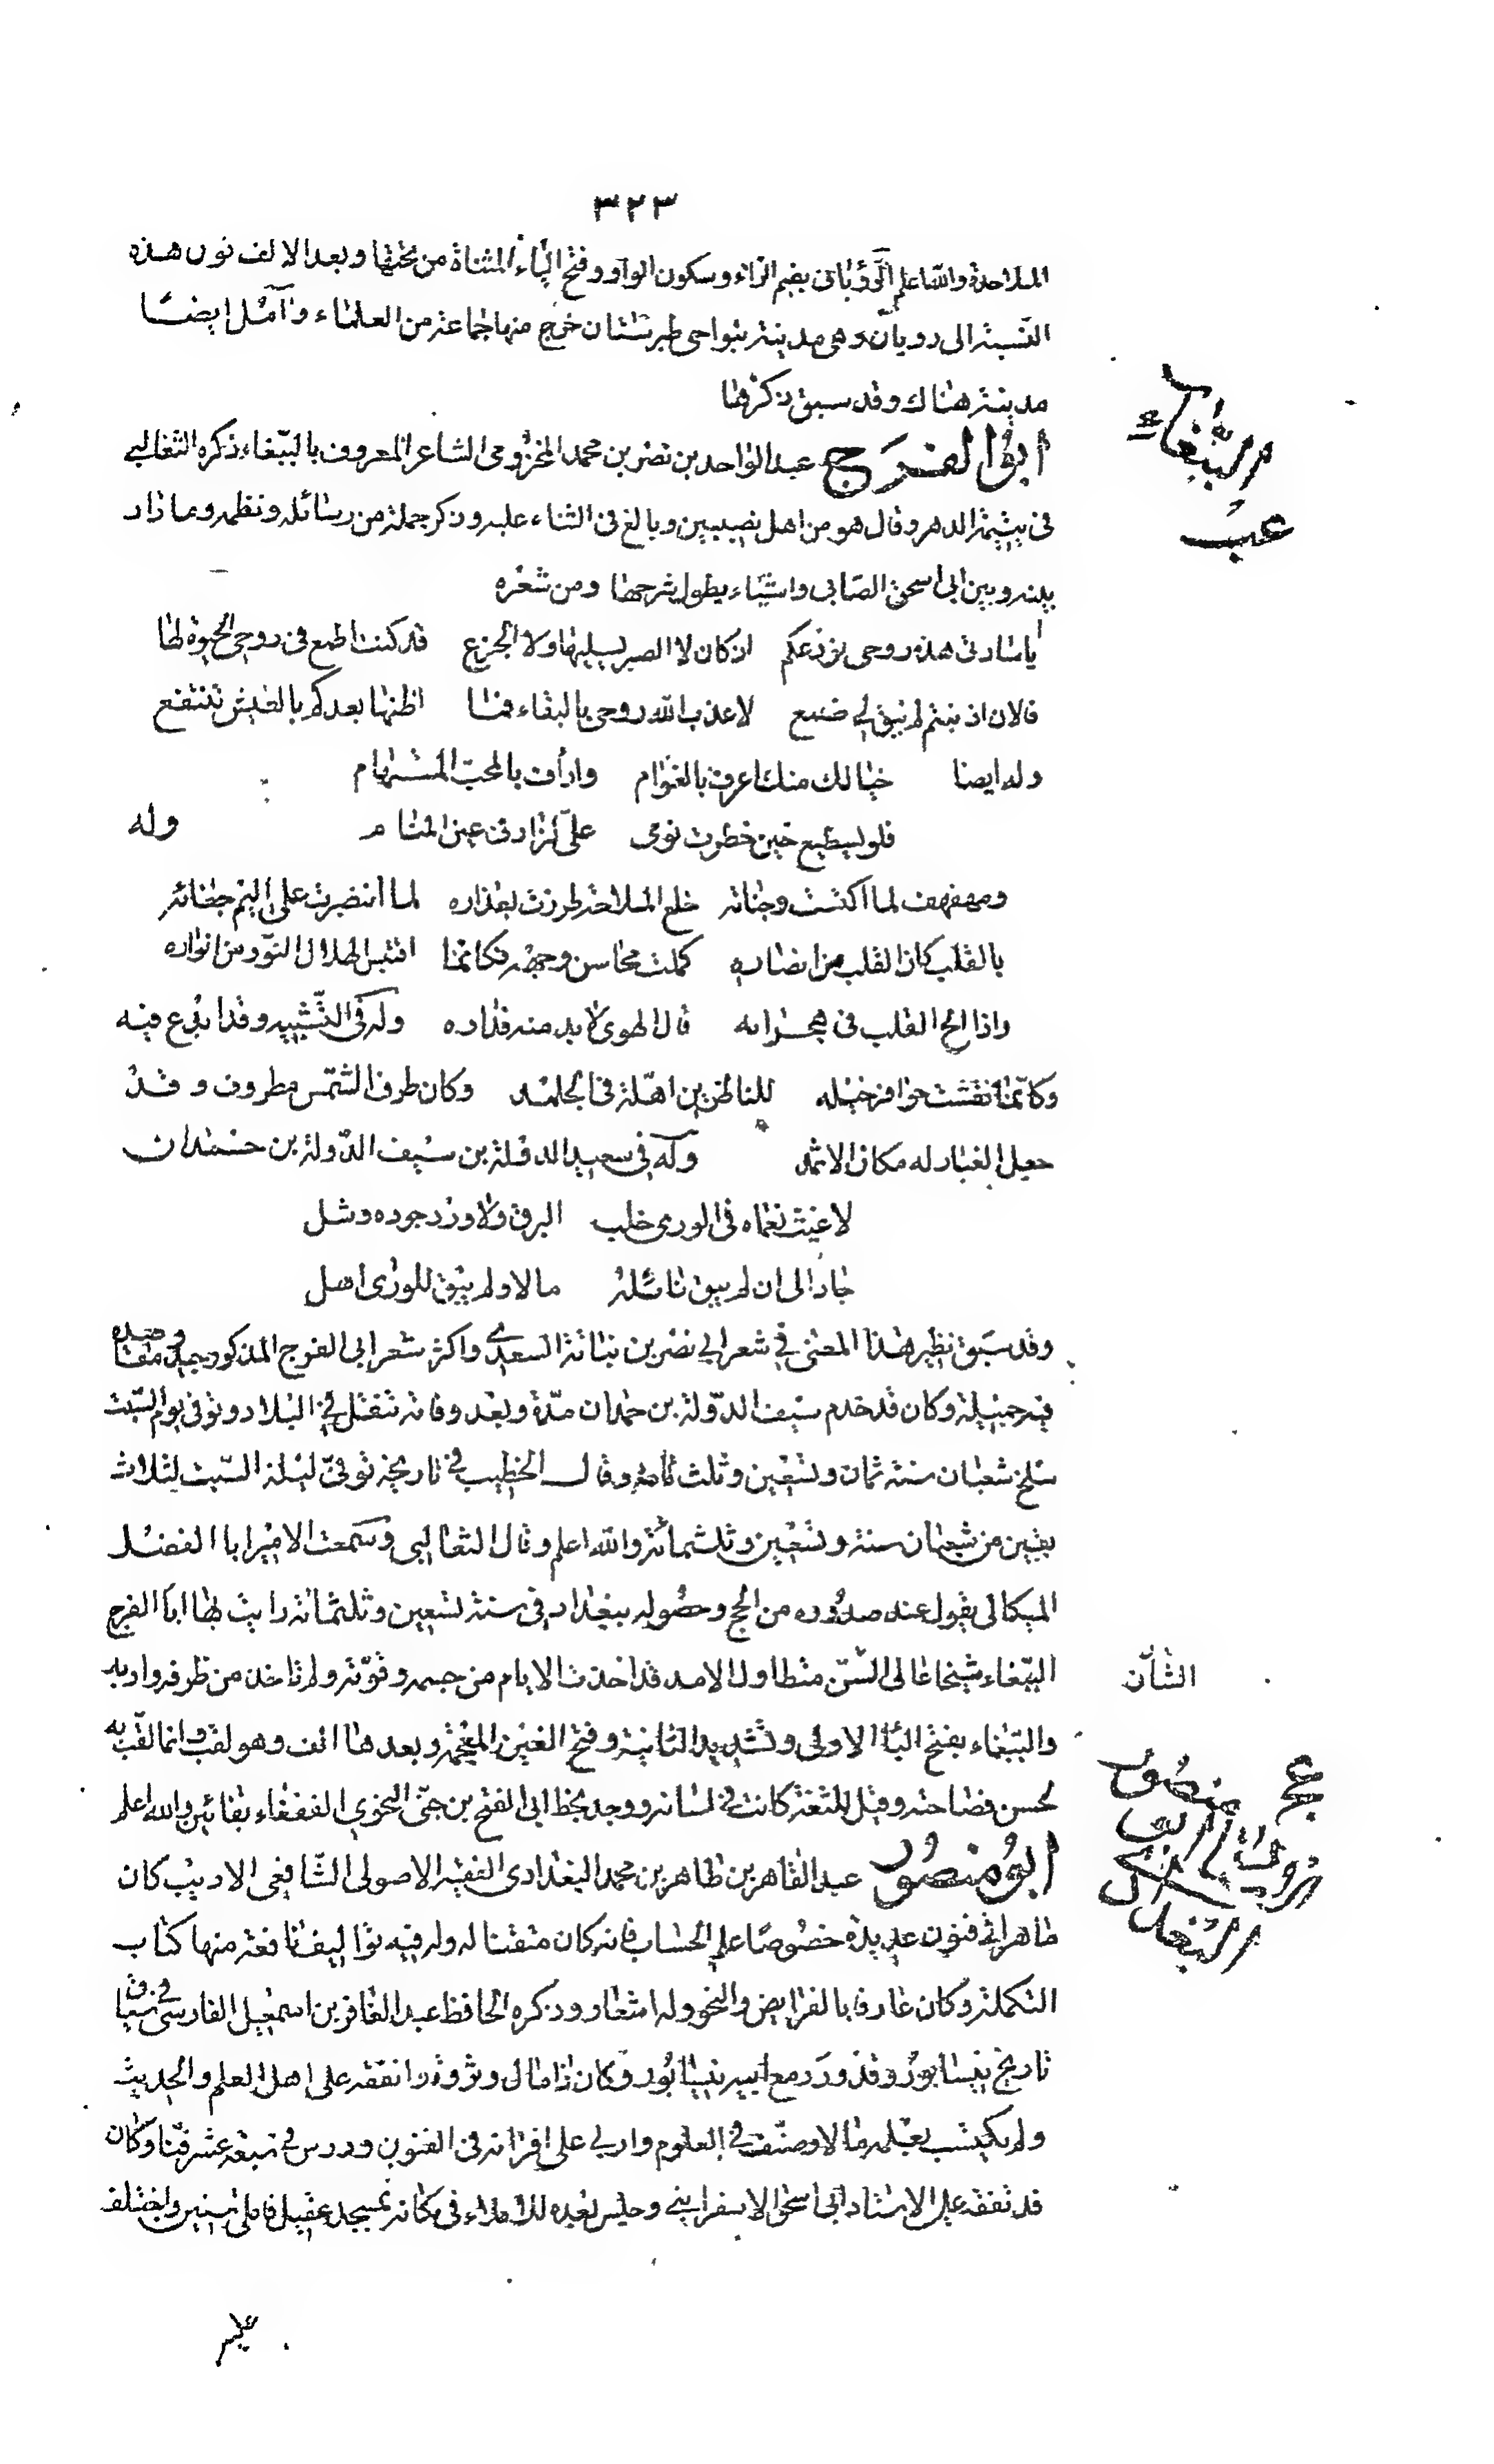 ٣٢٣
الملاحدة والله اعلم والرّؤياني بضم الراء وسكون الواو وفتح الياء المثناة من تحتها وبعد الالف نون هذه
النسبة الى رويان وهى مدينة بنواحى طبرستان خرج منها جماعة من العلماء وآمل ايضا
مدينة هناك وقد سبق ذكرها
ابو الفرج عبد الواحد بن نصر بن محمد المخزومى الشاعر المعروف بالببّغاء ذكره الثعالبي
فى يتيمة الدهر وقال هو من اهل نصيبين وبالغ فى الثناء عليه وذكر جملة من رسائله ونظمه وما دار
بينه وبين ابى اسحق الصابى واشياء يطول شرحها ومن شعره
يا سادتى هذه روحى تودعكم اذ كان لا الصبر يسليها ولا الجزع قد كنت اطمع فى روح الحيوة لها
فالان اذ بنتم لم يبق لى طمع لا عذب الله روحى بالبقاء فما اظنها بعدكم بالعيش تنتفع
وله ايضا خيالك منك اعرف بالغرام وارأف بالمحبّ المستهام
فلو يسطيع حين حظرت نومى علىّ لزار فى عين المنام وله
ومهفهف لما اكتست وجناته خلع الملاحة طرزت بعذاره لما انتصرت على اليم جفائه
بالقلب كان القلب من انصاره كملت محاسن وجهه فكانما اقتبس الهلال النور من انواره
واذا الح القلب فى هجرانه قال الهوى لا بد منه فداره وله فى التّشبيه وقد ابدع فيه
وكانّما نقشت حوافر خيله للناظرين اهلّة فى الجلمد وكان طرف الشمس مطروف وقد
جعل الغبار له مكان الاثمد وله فى سعيد الدولة بن سيف الدّولة بن حمدان
لا غيث نعماه فى الورى خلب البرق ولا ورد جوده وشل
جاد الى ان لم يبق نائله مالا ولم يبق للورى امل
وقد سبق نظير هذا المعنى فى شعر ابي نصر بن نباتة السعدى واكثر شعر ابى الفرج المذكور جيد ومقاصده
فيه جميلة وكان قد خدم سيف الدّولة بن حمدان مدّة وبعد وفاته تنقل فى البلاد وتوفى يوم السّبت
سلخ شعبان سنة ثمان وتسعين وثلث مائة وقال الخطيب فى تاريخه توفىّ ليلة السّبت لثلاث
بقين من شعبان سنة وتسعين وثلثمائة والله اعلم وقال الثعالبى وسمعت الامير ابا الفضل
الميكالى يقول عند صدوره من الحج وحصوله ببغداد فى سنة تسعين وثلثمائة رايت بها ابا الفرج
الببّغاء شيخا عالى السّنّ متطاول الامد قد اخذت الايام من جسمه وقوّته ولم تاخذ من ظرفه وادبه
الشأن
والببّغاء بفتح الباء الاولى وتشديد الثانية وفتح الغين المعجمة وبعدها الف وهو لقب وانما لقّب به
لحسن فصاحته وقيل للثغة كانت فى لسانه ووجد بخط ابى الفتح بن جنّى النحوى الففغاء بفائين والله اعلم
ابو منصور عبد القاهر بن طاهر بن محمد البغدادى الفقيه الاصولى الشّافعى الاديب كان
ماهرا فى فنون عديدة خصوصا علم الحساب فانه كان متقنا له وله فيه تواليف نافعة منها كتاب
التكملة وكان عارفا بالفرايض والنحو وله اشعار وذكره الحافظ عبد الغافر بن اسمعيل الفارسى فى سياق
تاريخ نيسابور وقد ورد مع ابيه نيسابور وكان ذا مال وثروة وانفقه على اهل العلم والحديث
ولم يكتسب بعلمه مالا وصنّف فى العلوم واربى على اقرانه فى الفنون ودرس فى سبعة عشر فنّا وكان
قد تفقه على الاستاذ ابى اسحق الاسفراينى وجلس بعده للاملاء فى مكانه بمسجد عقيل فاملى سنين واختلف
الببّغاء
عب
عج
منصور
البغدادى